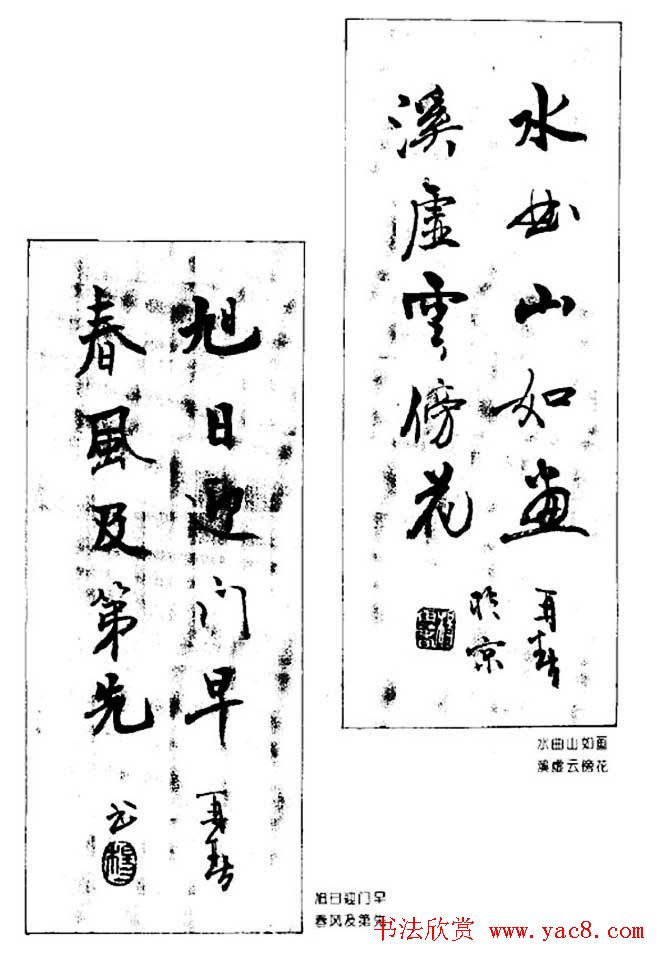 水曲山如画
溪虚雲傍花
再春
於京
水曲山如画
溪虚云傍花
旭日迎门早
春風及第先
再春
书
旭日迎门早
春风及第先
书法欣赏 www.yac8.com